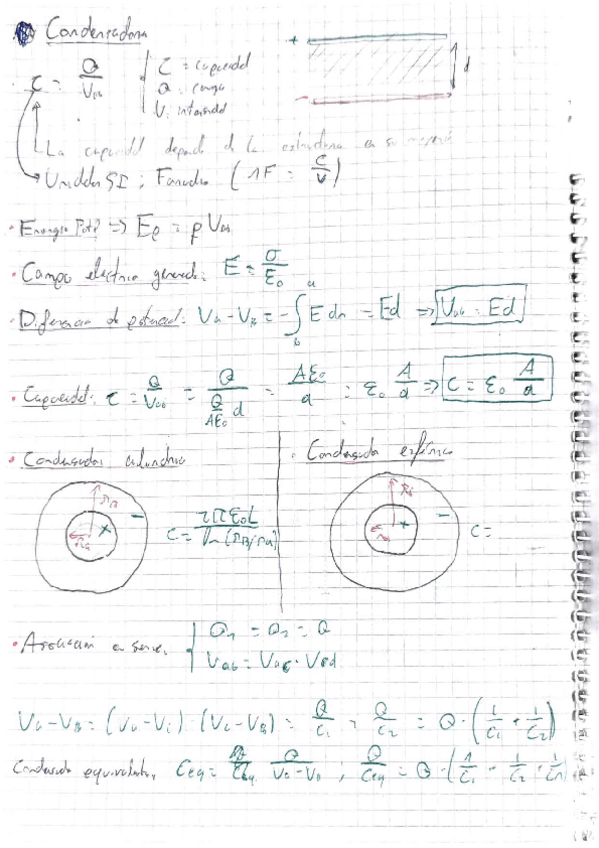 Condensadora
C = Q / Vab { C = capacidad
Q = carga
V = intensidad
+
-
d
La capacidad depende de la estructura en su
Unidades SI: Faradio (1F = C/V)
· Energía Potl => Ep = p Vab
· Campo eléctrico generado: E = σ/ε₀
· Diferencia de potencial: Va - Vb = -∫ₐᵇ E dr = Ed => Vab = Ed
· Capacidad: C = Q/Vab = Q / (Q/(Aε₀) d) = Aε₀/d = ε₀ A/d => C = ε₀ A/d
· Condensador cilíndrico
ra
rB
+
-
C = 2πε₀L / ln(rB/ra)
· Condensador esférico
+
-
C =
· Asociación en serie { Q₁ = Q₂ = Q
Va - Vb = (Va - Vc) + (Vc - Vb) = Q/C₁ + Q/C₂ = Q · (1/C₁ + 1/C₂)
Condensador equivalente, Ceq = Q / (Va - Vb) ; Q/Ceq = Q · (1/C₁ + 1/C₂ + 1/Cn)